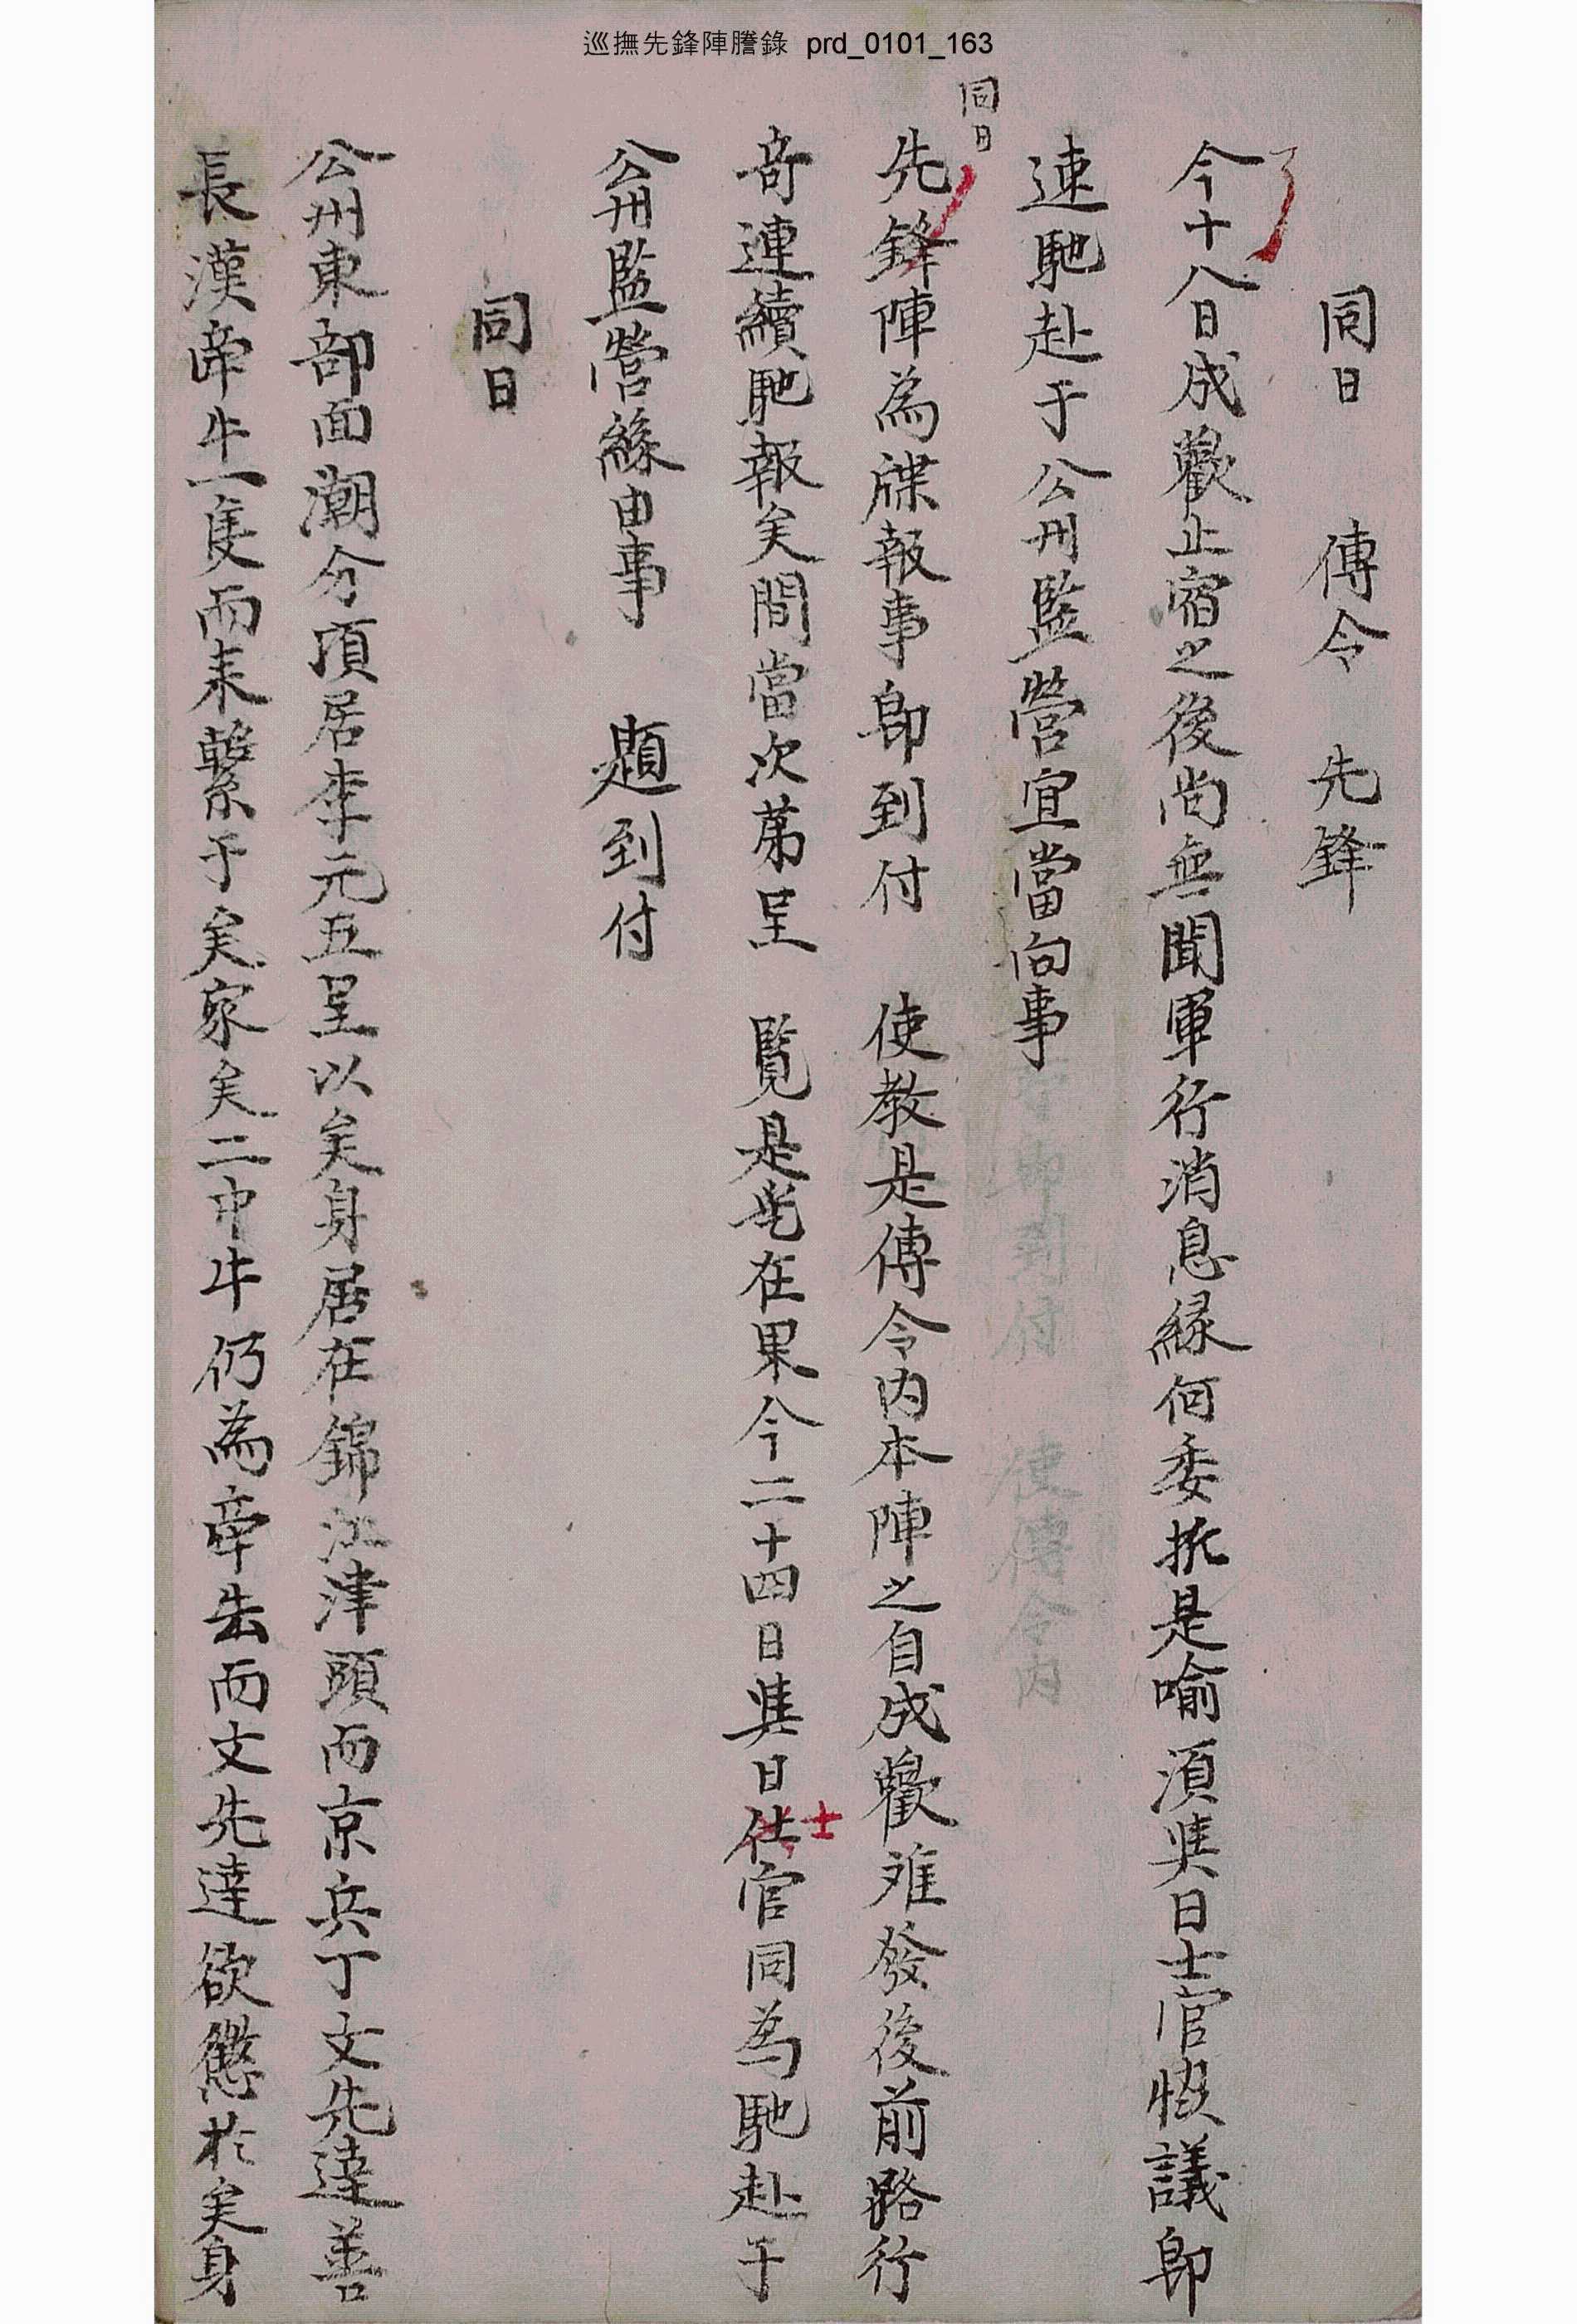 巡撫先鋒陣謄錄 prd_0101_163
同日 傳令 先鋒
今十八日成歡止宿之後尙無聞軍行消息緣何委折是喩須與日士官悛議卽
速馳赴于公州監營宜當向事
卽到付 使傳令內
同日
先鋒陣爲牒報事卽到付 使敎是傳令內本陣之自成歡难發後前路行
奇連續馳報矣間當次第呈 覽是乎在果今二十四日與日仕官同爲馳赴于
士
公州監營緣由事 題到付
同日
公州東部面潮分項居李元五呈以矣身居在錦江津頭而京兵丁文先達善
長漢牽牛一隻而來繫于矣家矣二中牛仍爲牽去而文先達欲懲於矣身